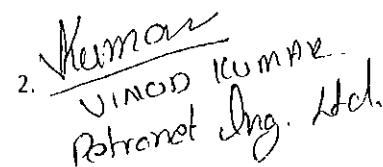 2. Kumar
VINOD KUMAR.
Petronet lng. Ltd.